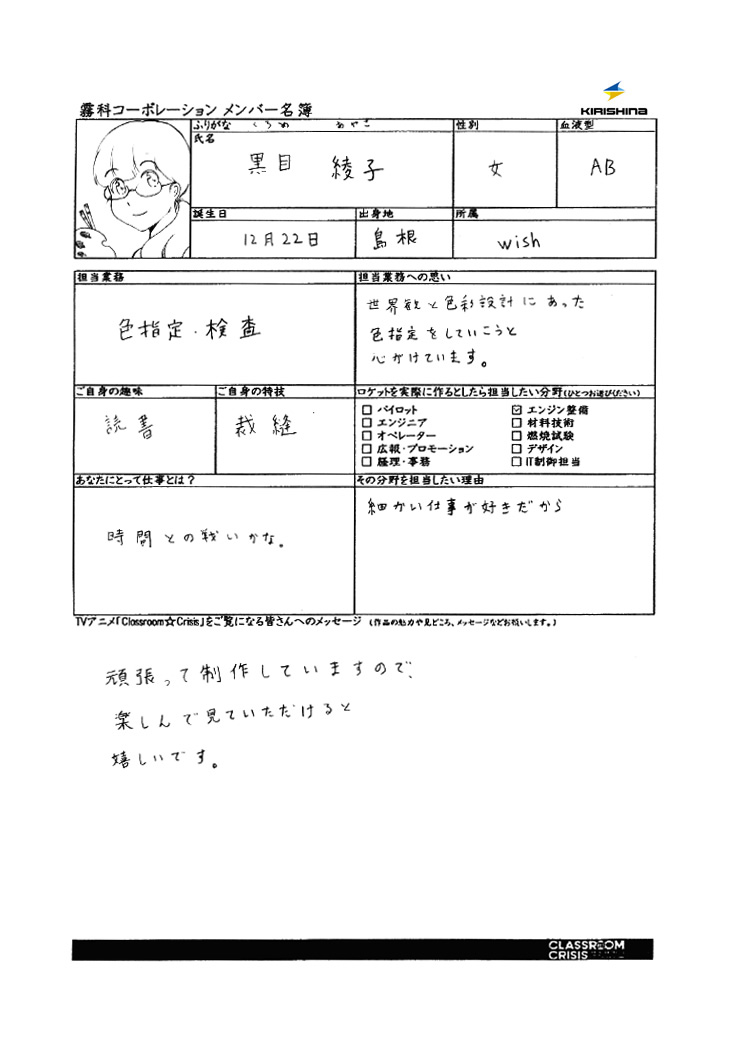 KIRISHINA
霧科コーポレーション メンバー名簿
ふりがな くろめ あやこ
氏名
黒目 綾子
性別
女
血液型
AB
誕生日
12月22日
出身地
島根
所属
wish
担当業務
色指定・検査
担当業務への思い
世界観と色彩設計にあった
色指定をしていこうと
心がけています。
ご自身の趣味
読書
ご自身の特技
裁縫
ロケットを実際に作るとしたら担当したい分野(ひとつお選びください)
☐ パイロット
☐ エンジニア
☐ オペレーター
☐ 広報・プロモーション
☐ 経理・事務
☑ エンジン整備
☐ 材料技術
☐ 燃焼試験
☐ デザイン
☐ IT制御担当
あなたにとって仕事とは?
時間との戦いかな。
その分野を担当したい理由
細かい仕事が好きだから
TVアニメ「Classroom☆Crisis」をご覧になる皆さんへのメッセージ (作品の魅力や見どころ、メッセージなどお願いします。)
頑張って制作していますので、
楽しんで見ていただけると
嬉しいです。
CLASSROOM
CRISIS